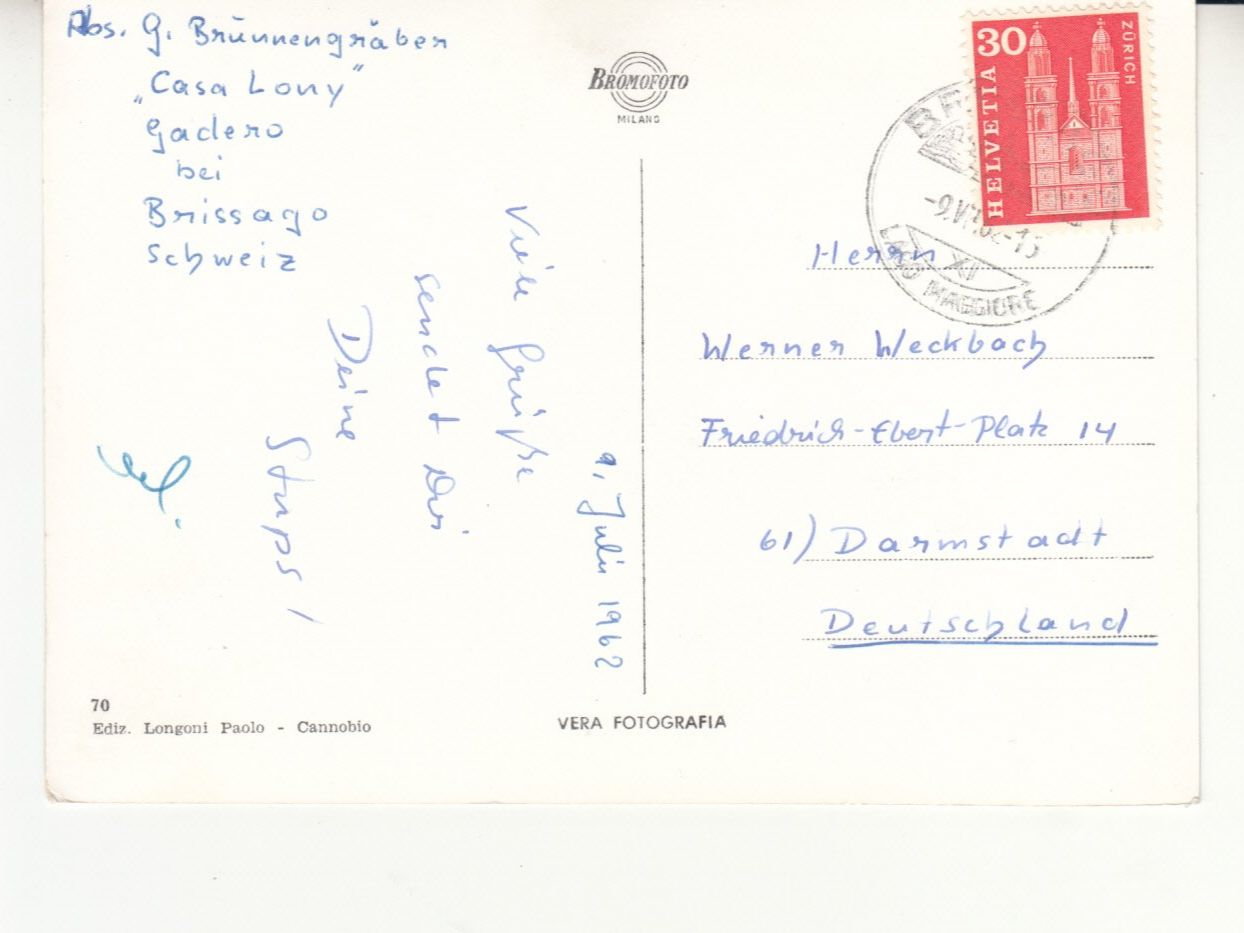 Abs. G. Brünnengräber
„Casa Lony"
Gadero
bei
Brissago
Schweiz
BROMOFOTO
MILANO
30
HELVETIA
ZÜRICH
LAGO MAGGIORE
XI
Viele Grüße
sendet Dir
Deine
Stups!
9. Juli 1962
Herrn
Werner Weckbach
Friedrich-Ebert-Platz 14
61) Darmstadt
Deutschland
70
Ediz. Longoni Paolo - Cannobio
VERA FOTOGRAFIA